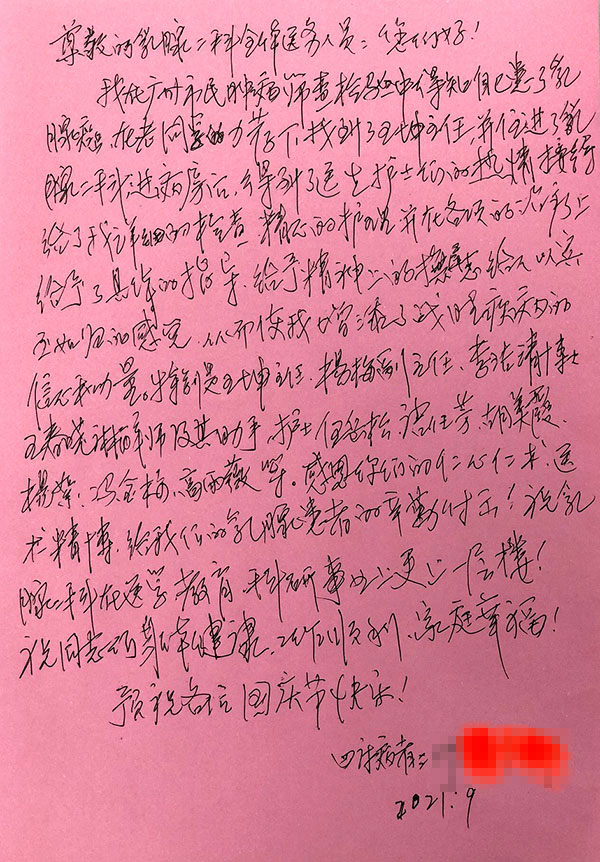 尊敬的乳腺二科全体医务人员：您们好！
我在广州市民肿瘤筛查检验中得知自己患了乳
腺癌，在老同学的力荐下，找到了王坤主任，并住进了乳
腺二科，进病房后，得到了医生护士们的热情接待
给了我详细的检查，精心的护理，并在各项的治疗上
给予了具体的指导，给予精神上的抚慰，给人以宾
至如归的感觉，从而使我增添了战胜疾病的
信心和力量。特别是王坤主任、杨梅副主任、李洁静博士
王春晓
杨 冯金梅、高雨薇等。感恩你们的仁心仁术，医
术精博，给我们的乳腺患者的辛勤付出！祝乳
腺二科在医学教育、科研事业上更上一层楼！
祝同志们身体健康，工作顺利、家庭幸福！
预祝各位国庆节快乐！
患者：
2021.9